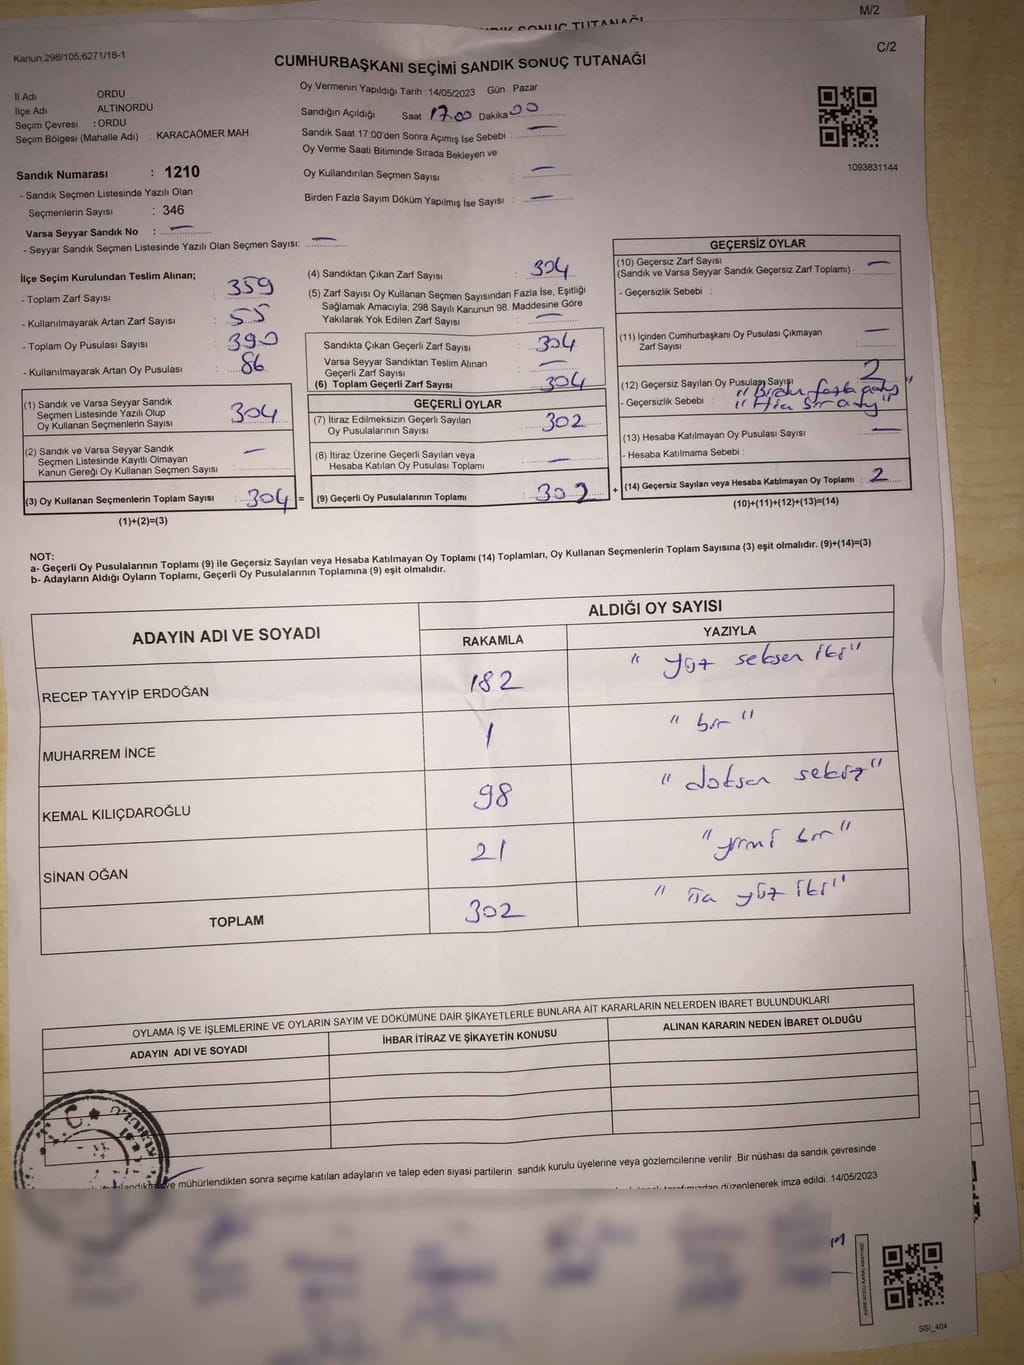 M/2
SANDIK SONUÇ TUTANAĞI
Kanun;298/105;6271/18-1
C/2
CUMHURBAŞKANI SEÇİMİ SANDIK SONUÇ TUTANAĞI
İl Adı : ORDU
İlçe Adı : ALTINORDU
Seçim Çevresi : ORDU
Seçim Bölgesi (Mahalle Adı) : KARACAÖMER MAH
Sandık Numarası : 1210
- Sandık Seçmen Listesinde Yazılı Olan
Seçmenlerin Sayısı : 346
Varsa Seyyar Sandık No : —
- Seyyar Sandık Seçmen Listesinde Yazılı Olan Seçmen Sayısı: —
Oy Vermenin Yapıldığı Tarih : 14/05/2023 Gün : Pazar
Sandığın Açıldığı Saat 17.00 Dakika 00
Sandık Saat 17:00'den Sonra Açımış İse Sebebi : —
Oy Verme Saati Bitiminde Sırada Bekleyen ve
Oy Kullandırılan Seçmen Sayısı : —
Birden Fazla Sayım Döküm Yapılmış İse Sayısı : —
1093831144
İlçe Seçim Kurulundan Teslim Alınan;
- Toplam Zarf Sayısı : 359
- Kullanılmayarak Artan Zarf Sayısı : 55
- Toplam Oy Pusulası Sayısı : 390
- Kullanılmayarak Artan Oy Pusulası : 86
(1) Sandık ve Varsa Seyyar Sandık
Seçmen Listesinde Yazılı Olup
Oy Kullanan Seçmenlerin Sayısı : 304
(2) Sandık ve Varsa Seyyar Sandık
Seçmen Listesinde Kayıtlı Olmayan
Kanun Gereği Oy Kullanan Seçmen Sayısı : —
(3) Oy Kullanan Seçmenlerin Toplam Sayısı : 304 =
(1)+(2)=(3)
(4) Sandıktan Çıkan Zarf Sayısı : 304
(5) Zarf Sayısı Oy Kullanan Seçmen Sayısından Fazla İse, Eşitliği
Sağlamak Amacıyla; 298 Sayılı Kanunun 98. Maddesine Göre
Yakılarak Yok Edilen Zarf Sayısı : —
Sandıkta Çıkan Geçerli Zarf Sayısı : 304
Varsa Seyyar Sandıktan Teslim Alınan
Geçerli Zarf Sayısı : —
(6) Toplam Geçerli Zarf Sayısı : 304
GEÇERLİ OYLAR
(7) İtiraz Edilmeksizin Geçerli Sayılan
Oy Pusulalarının Sayısı : 302
(8) İtiraz Üzerine Geçerli Sayılan veya
Hesaba Katılan Oy Pusulası Toplamı : —
(9) Geçerli Oy Pusulalarının Toplamı : 302 +
GEÇERSİZ OYLAR
(10) Geçersiz Zarf Sayısı
(Sandık ve Varsa Seyyar Sandık Geçersiz Zarf Toplamı) : —
- Geçersizlik Sebebi :
(11) İçinden Cumhurbaşkanı Oy Pusulası Çıkmayan
Zarf Sayısı : —
(12) Geçersiz Sayılan Oy Pusulası Sayısı : 2
- Geçersizlik Sebebi :
(13) Hesaba Katılmayan Oy Pusulası Sayısı : —
- Hesaba Katılmama Sebebi :
(14) Geçersiz Sayılan veya Hesaba Katılmayan Oy Toplamı : 2
(10)+(11)+(12)+(13)=(14)
NOT:
a- Geçerli Oy Pusulalarının Toplamı (9) ile Geçersiz Sayılan veya Hesaba Katılmayan Oy Toplamı (14) Toplamları, Oy Kullanan Seçmenlerin Toplam Sayısına (3) eşit olmalıdır. (9)+(14)=(3)
b- Adayların Aldığı Oyların Toplamı, Geçerli Oy Pusulalarının Toplamına (9) eşit olmalıdır.
ADAYIN ADI VE SOYADI
ALDIĞI OY SAYISI
RAKAMLA YAZIYLA
RECEP TAYYİP ERDOĞAN 182 "yüz seksen iki"
MUHARREM İNCE 1 "bir"
KEMAL KILIÇDAROĞLU 98 "doksan sekiz"
SİNAN OĞAN 21 "yirmi bir"
TOPLAM 302 "üç yüz iki"
OYLAMA İŞ VE İŞLEMLERİNE VE OYLARIN SAYIM VE DÖKÜMÜNE DAİR ŞİKAYETLERLE BUNLARA AİT KARARLARIN NELERDEN İBARET BULUNDUKLARI
ADAYIN ADI VE SOYADI İHBAR İTİRAZ VE ŞİKAYETİN KONUSU ALINAN KARARIN NEDEN İBARET OLDUĞU
T.C.
ve mühürlendikten sonra seçime katılan adayların ve talep eden siyasi partilerin sandık kurulu üyelerine veya gözlemcilerine verilir .Bir nüshası da sandık çevresinde
düzenlenerek imza edildi. 14/05/2023
KARE KODU KARALAMAYINIZ!
SSI_404